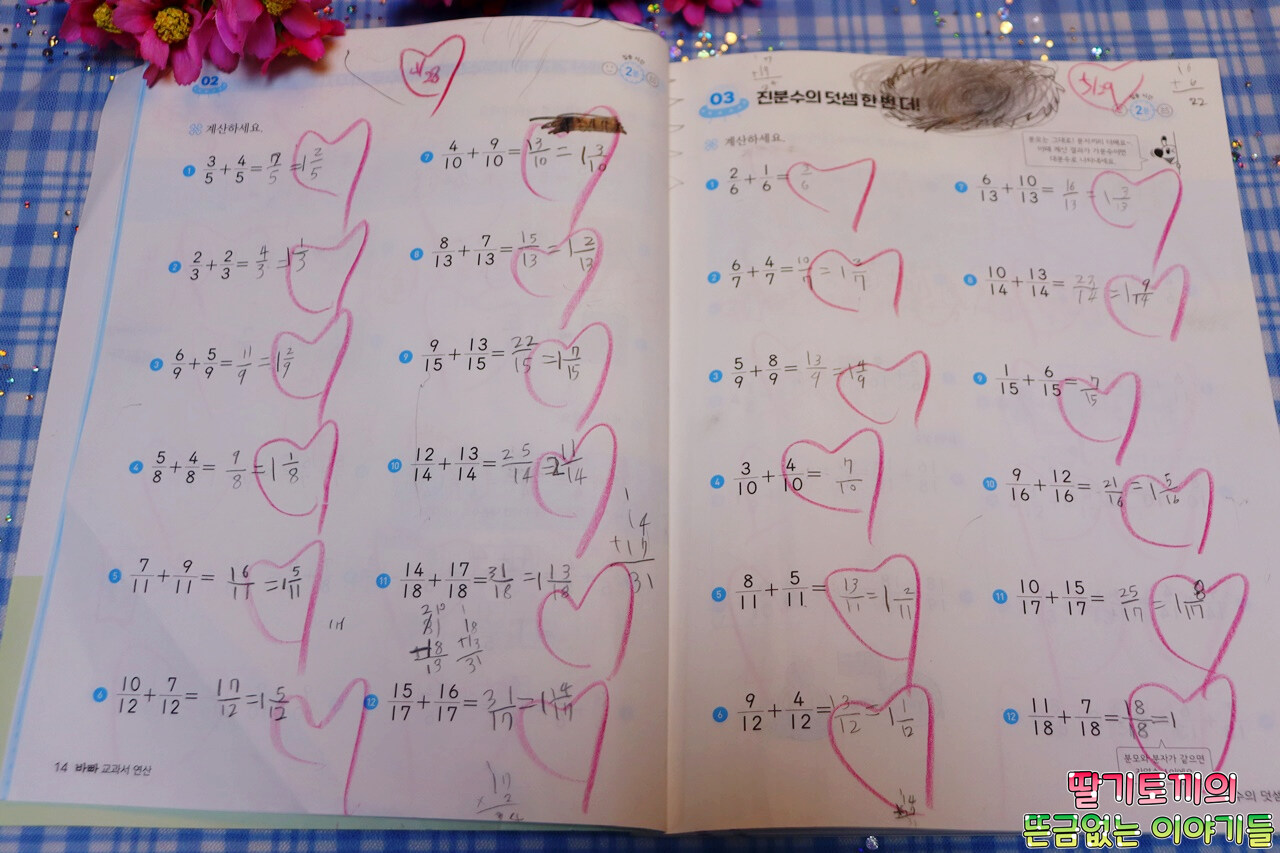 02
계산하세요.
1 3/5 + 4/5 = 7/5 = 1 2/5
2 2/3 + 2/3 = 4/3 = 1 1/3
3 6/9 + 5/9 = 11/9 = 1 2/9
4 5/8 + 4/8 = 9/8 = 1 1/8
5 7/11 + 9/11 = 16/11 = 1 5/11
6 10/12 + 7/12 = 17/12 = 1 5/12
7 4/10 + 9/10 = 13/10 = 1 3/10
8 8/13 + 7/13 = 15/13 = 1 2/13
9 9/15 + 13/15 = 22/15 = 1 7/15
10 12/14 + 13/14 = 25/14 = 11/14
11 14/18 + 17/18 = 31/18 = 1 13/18
12 15/17 + 16/17 = 31/17 = 1 14/17
1
14
+17
31
14 바빠 교과서 연산
03 진분수의 덧셈 한 번 더!
계산하세요.
분모는 그대로! 분자끼리 더해요~
이때 계산 결과가 가분수이면
대분수로 나타내세요.
1 2/6 + 1/6 = 3/6
2 6/7 + 4/7 = 10/7 = 1 3/7
3 5/9 + 8/9 = 13/9 = 1 4/9
4 3/10 + 4/10 = 7/10
5 8/11 + 5/11 = 13/11 = 1 2/11
6 9/12 + 4/12 = 13/12 = 1 1/12
7 6/13 + 10/13 = 16/13 = 1 3/13
8 10/14 + 13/14 = 23/14 = 1 9/14
9 1/15 + 6/15 = 7/15
10 9/16 + 12/16 = 21/16 = 1 5/16
11 10/17 + 15/17 = 25/17 = 1 8/17
12 11/18 + 7/18 = 18/18 = 1
분모와 분자가 같으면
수의 덧셈
딸기토끼의
뜬금없는 이야기들